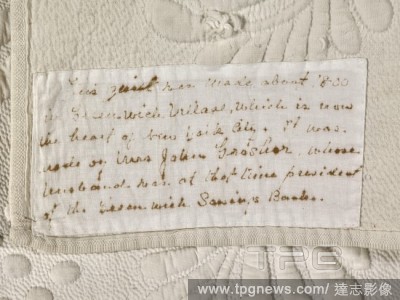 This quilt was made about 1800
in Greenwich Village, which is now
the heart of New York City. It was
made by Mrs John
husband was at that time president
of the Greenwich Savings Bank.
TPG
www.tpgnews.com / 達志影像